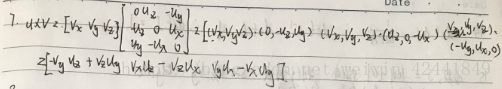 Date
7. u×v = [Vx Vy Vz] [0 Uz -Uy
Uz 0 Ux
Uy -Ux 0] = [(Vx,Vy,Vz)·(0,-Uz,Uy) (Vx,Vy,Vz)·(Uz,0,-Ux) (Vx,Vy,Vz)·
(-Uy,Ux,0)
=[-Vy Uz + Vz Uy VxUz - VzUx VyUx - VxUy]